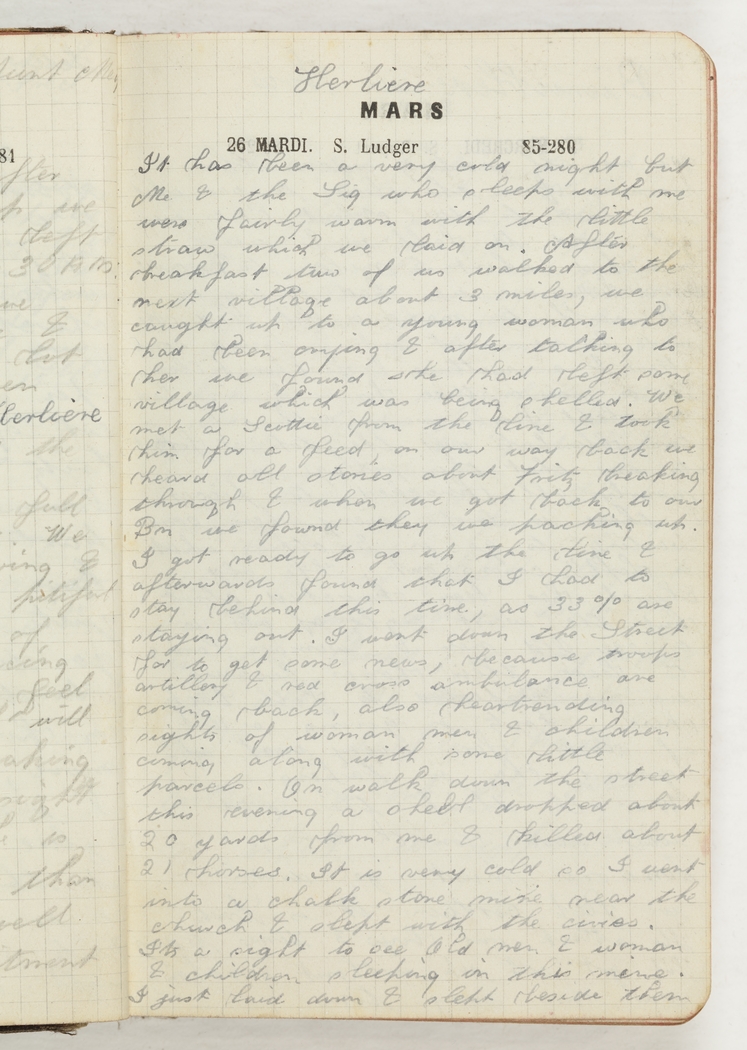 Herliere
MARS
26 MARDI. S. Ludger 85-280
It has been a very cold night but
Me & the Sig who sleeps with me
were fairly warm with the little
straw which we laid on. After
breakfast two of us walked to the
next village about 3 miles, we
caught up to a young woman who
had been crying & after talking to
her we found she had left some
village which was being shelled. We
met a Scottie from the line & took
him for a feed, on our way back we
heard all stories about Fritz breaking
through & when we got back to our
Bn we found they we packing up.
I got ready to go up the line &
afterwards found that I had to
stay behind this time, as 33% are
staying out. I went down the Street
for to get some news, because troops
artillery & red cross ambulance are
coming back, also heartrending
sights of woman men & children
coming along with some little
parcels. On walk down the street
this evening a shell dropped about
20 yards from me & killed about
21 horses. It is very cold so I went
into a chalk stone mine near the
church & slept with the civies.
Its a sight to see Old men & woman
& children sleeping in this mine.
I just laid down & slept beside them
81
after
we
left
30 Kms
we
&
but
Herliere
the
full
We
&
pitiful
of
feel
will
is
than